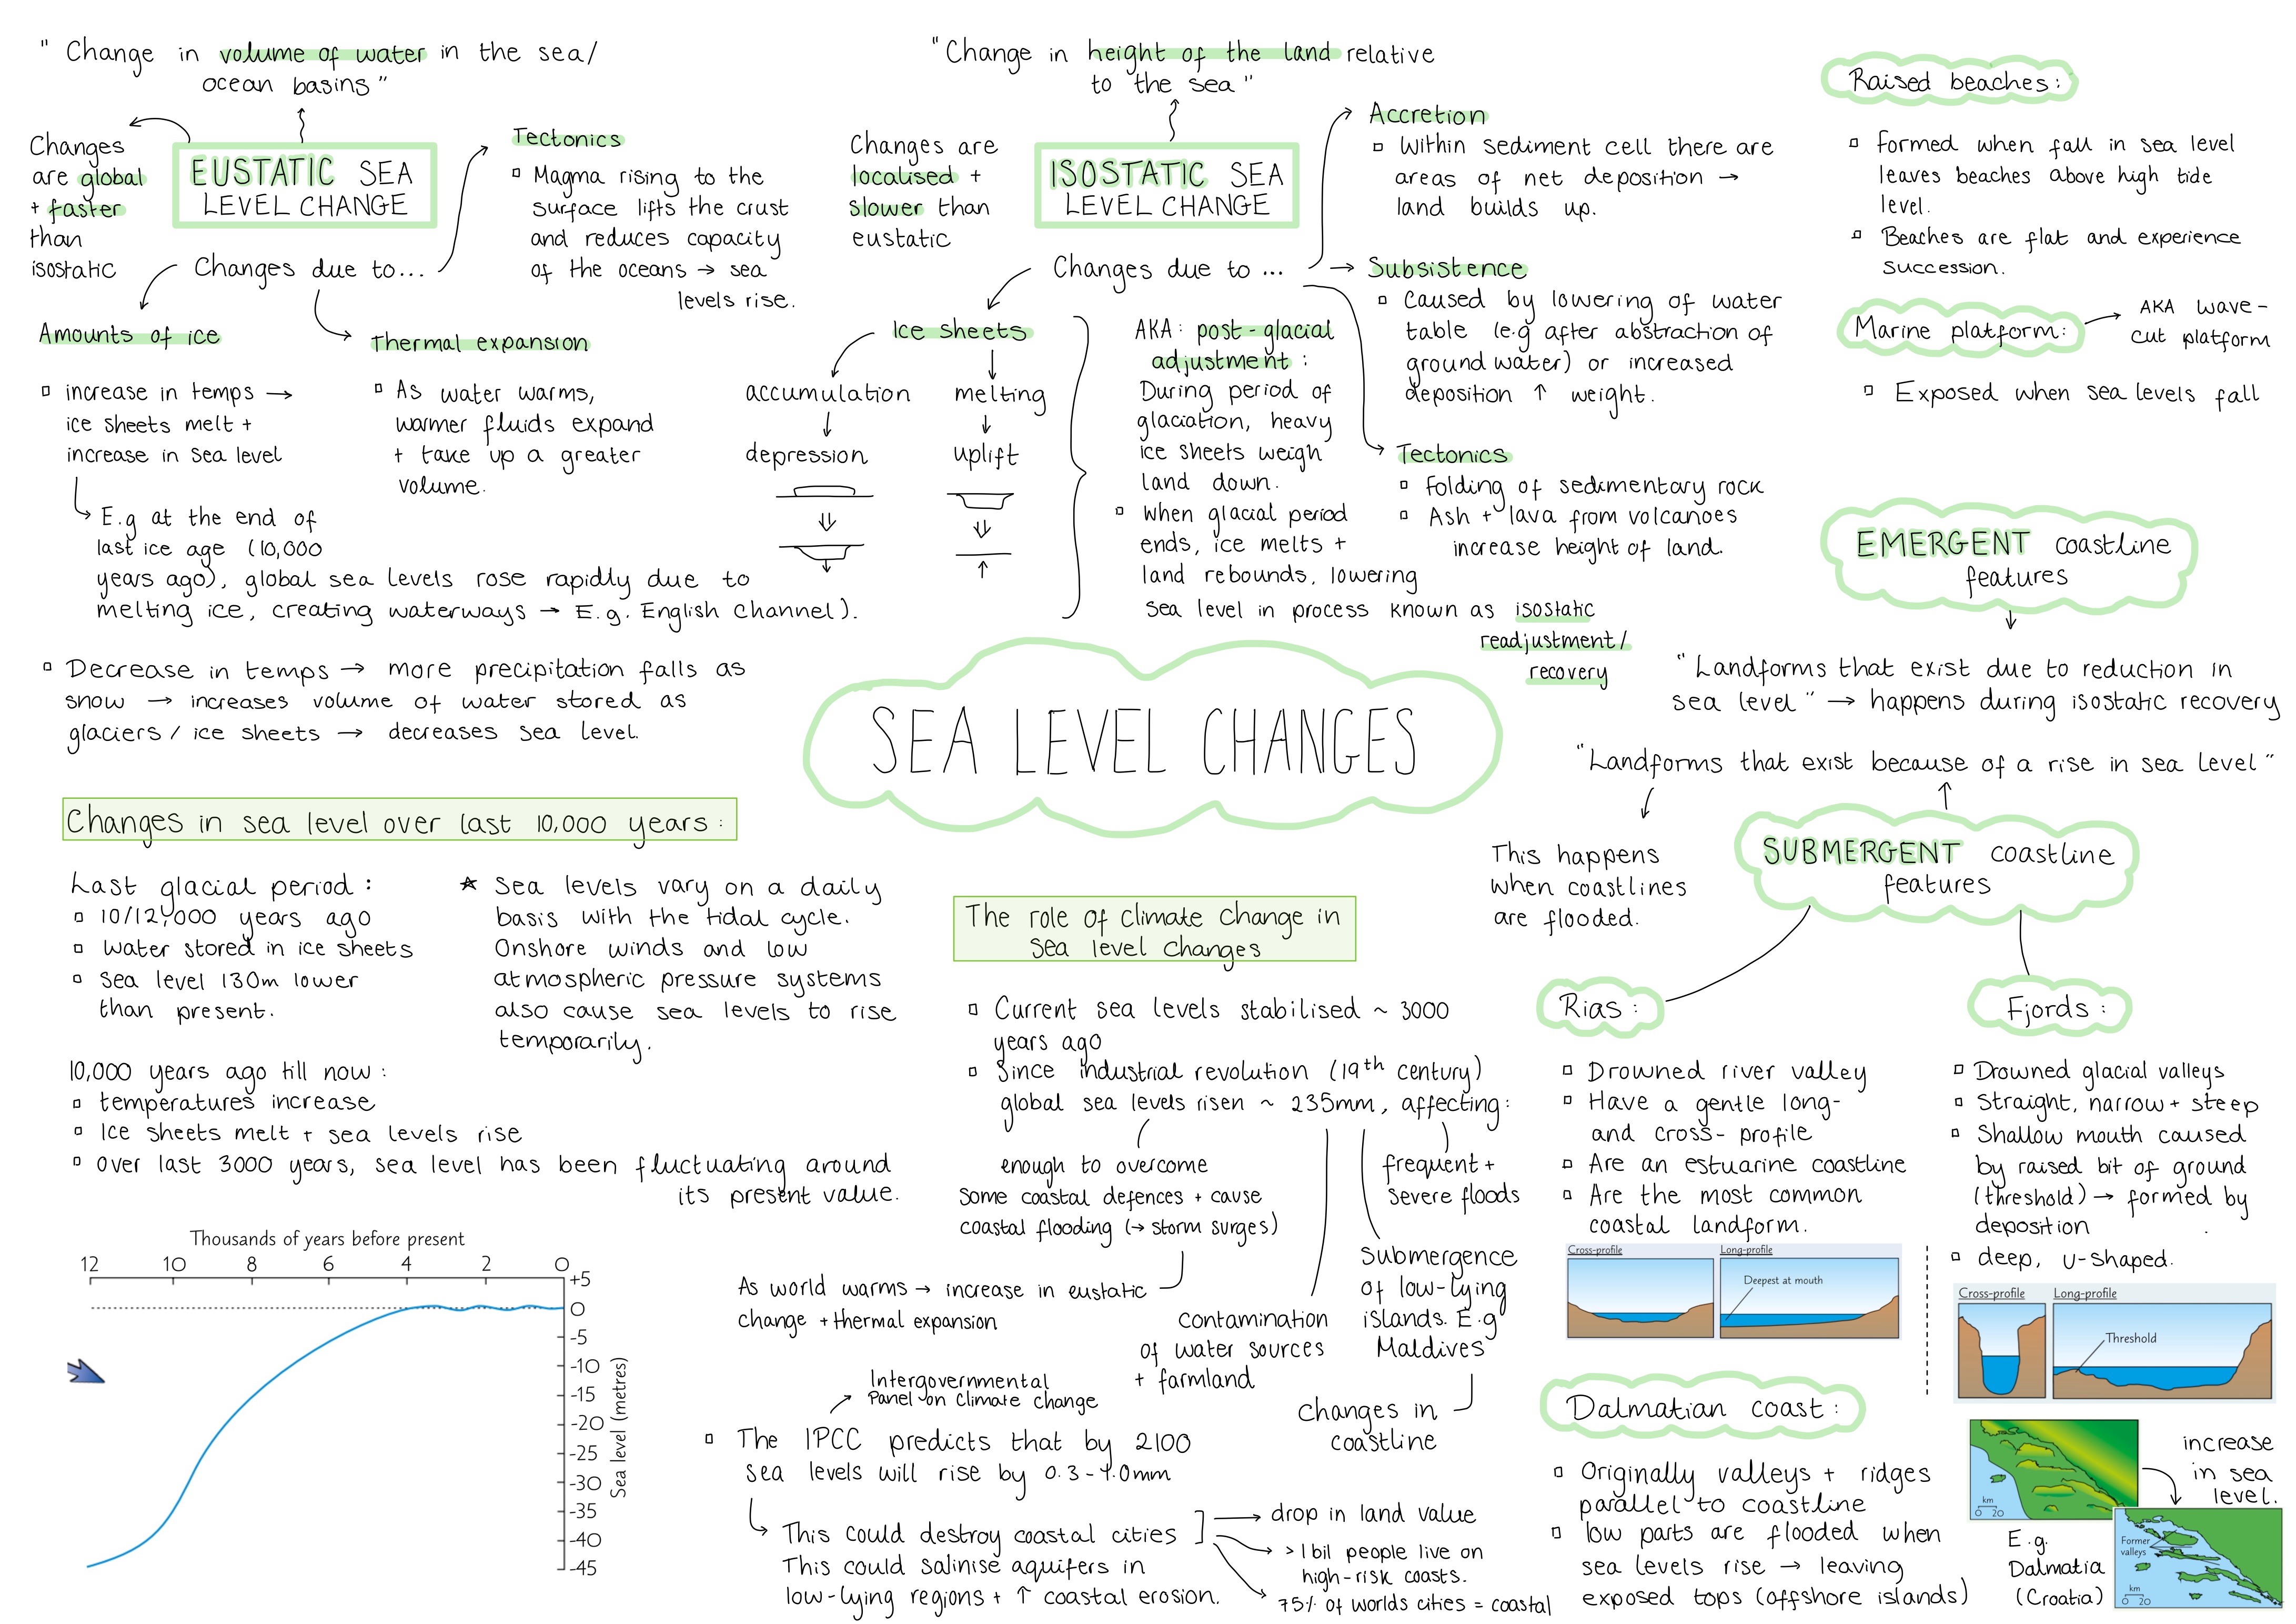 " Change in volume of water in the sea/
ocean basins "
Changes
are global
+ faster
than
isostatic
EUSTATIC SEA
LEVEL CHANGE
Changes due to...
Tectonics
▫ Magma rising to the
surface lifts the crust
and reduces capacity
of the oceans → sea
levels rise.
Amounts of ice
▫ increase in temps →
ice sheets melt +
increase in sea level
↳ E.g at the end of
last ice age (10,000
years ago), global sea levels rose rapidly due to
melting ice, creating waterways → E.g. English Channel).
Thermal expansion
▫ As water warms,
warmer fluids expand
+ take up a greater
volume.
▫ Decrease in temps → more precipitation falls as
snow → increases volume of water stored as
glaciers / ice sheets → decreases sea level.
"Change in height of the land relative
to the sea"
Changes are
localised +
slower than
eustatic
ISOSTATIC SEA
LEVEL CHANGE
Changes due to ...
Ice sheets
accumulation
↓
depression
melting
↓
uplift
AKA: post-glacial
adjustment :
During period of
glaciation, heavy
ice sheets weigh
land down.
▫ when glacial period
ends, ice melts +
land rebounds, lowering
sea level in process known as isostatic
readjustment/
recovery
Accretion
▫ Within sediment cell there are
areas of net deposition →
land builds up.
Subsistence
▫ Caused by lowering of water
table (e.g after abstraction of
ground water) or increased
deposition ↑ weight.
Tectonics
▫ Folding of sedimentary rock
▫ Ash + lava from volcanoes
increase height of land.
Raised beaches:
▫ formed when fall in sea level
leaves beaches above high tide
level.
▫ Beaches are flat and experience
succession.
Marine platform: → AKA wave-
cut platform
▫ Exposed when sea levels fall
EMERGENT coastline
features
"Landforms that exist due to reduction in
sea level" → happens during isostatic recovery
SEA LEVEL CHANGES
"Landforms that exist because of a rise in sea level"
This happens
when coastlines
are flooded.
SUBMERGENT coastline
features
Changes in sea level over last 10,000 years:
Last glacial period:
▫ 10/12,000 years ago
▫ water stored in ice sheets
▫ sea level 130m lower
than present.
★ Sea levels vary on a daily
basis with the tidal cycle.
Onshore winds and low
atmospheric pressure systems
also cause sea levels to rise
temporarily.
10,000 years ago till now:
▫ temperatures increase
▫ Ice sheets melt + sea levels rise
▫ over last 3000 years, sea level has been fluctuating around
its present value.
Thousands of years before present
12 10 8 6 4 2 0
+5
0
-5
-10
-15
-20
-25
-30
-35
-40
-45
Sea level (metres)
The role of climate change in
sea level changes
▫ Current sea levels stabilised ~ 3000
years ago
▫ Since industrial revolution (19th century)
global sea levels risen ~ 235mm, affecting:
enough to overcome
some coastal defences + cause
coastal flooding (→ storm surges)
As world warms → increase in eustatic
change + thermal expansion
contamination
of water sources
+ farmland
Submergence
of low-lying
islands. E.g
Maldives
changes in
coastline
frequent +
severe floods
Intergovernmental
Panel on Climate change
▫ The IPCC predicts that by 2100
sea levels will rise by 0.3-1.0mm
↳ This could destroy coastal cities
This could salinise aquifers in
low-lying regions + ↑ coastal erosion.
→ drop in land value
→ >1bil people live on
high-risk coasts.
→ 75% of worlds cities = coastal
Rias:
▫ Drowned river valley
▫ Have a gentle long-
and cross-profile
▫ Are an estuarine coastline
▫ Are the most common
coastal landform.
Cross-profile
Long-profile
Deepest at mouth
Fjords:
▫ Drowned glacial valleys
▫ Straight, narrow + steep
▫ Shallow mouth caused
by raised bit of ground
(threshold) → formed by
deposition
▫ deep, u-shaped.
Cross-profile
Long-profile
Threshold
Dalmatian coast:
▫ Originally valleys + ridges
parallel to coastline
▫ low parts are flooded when
sea levels rise → leaving
exposed tops (offshore islands)
km
0 20
increase
in sea
level.
E.g.
Dalmatia
(Croatia)
Former
valleys
km
0 20